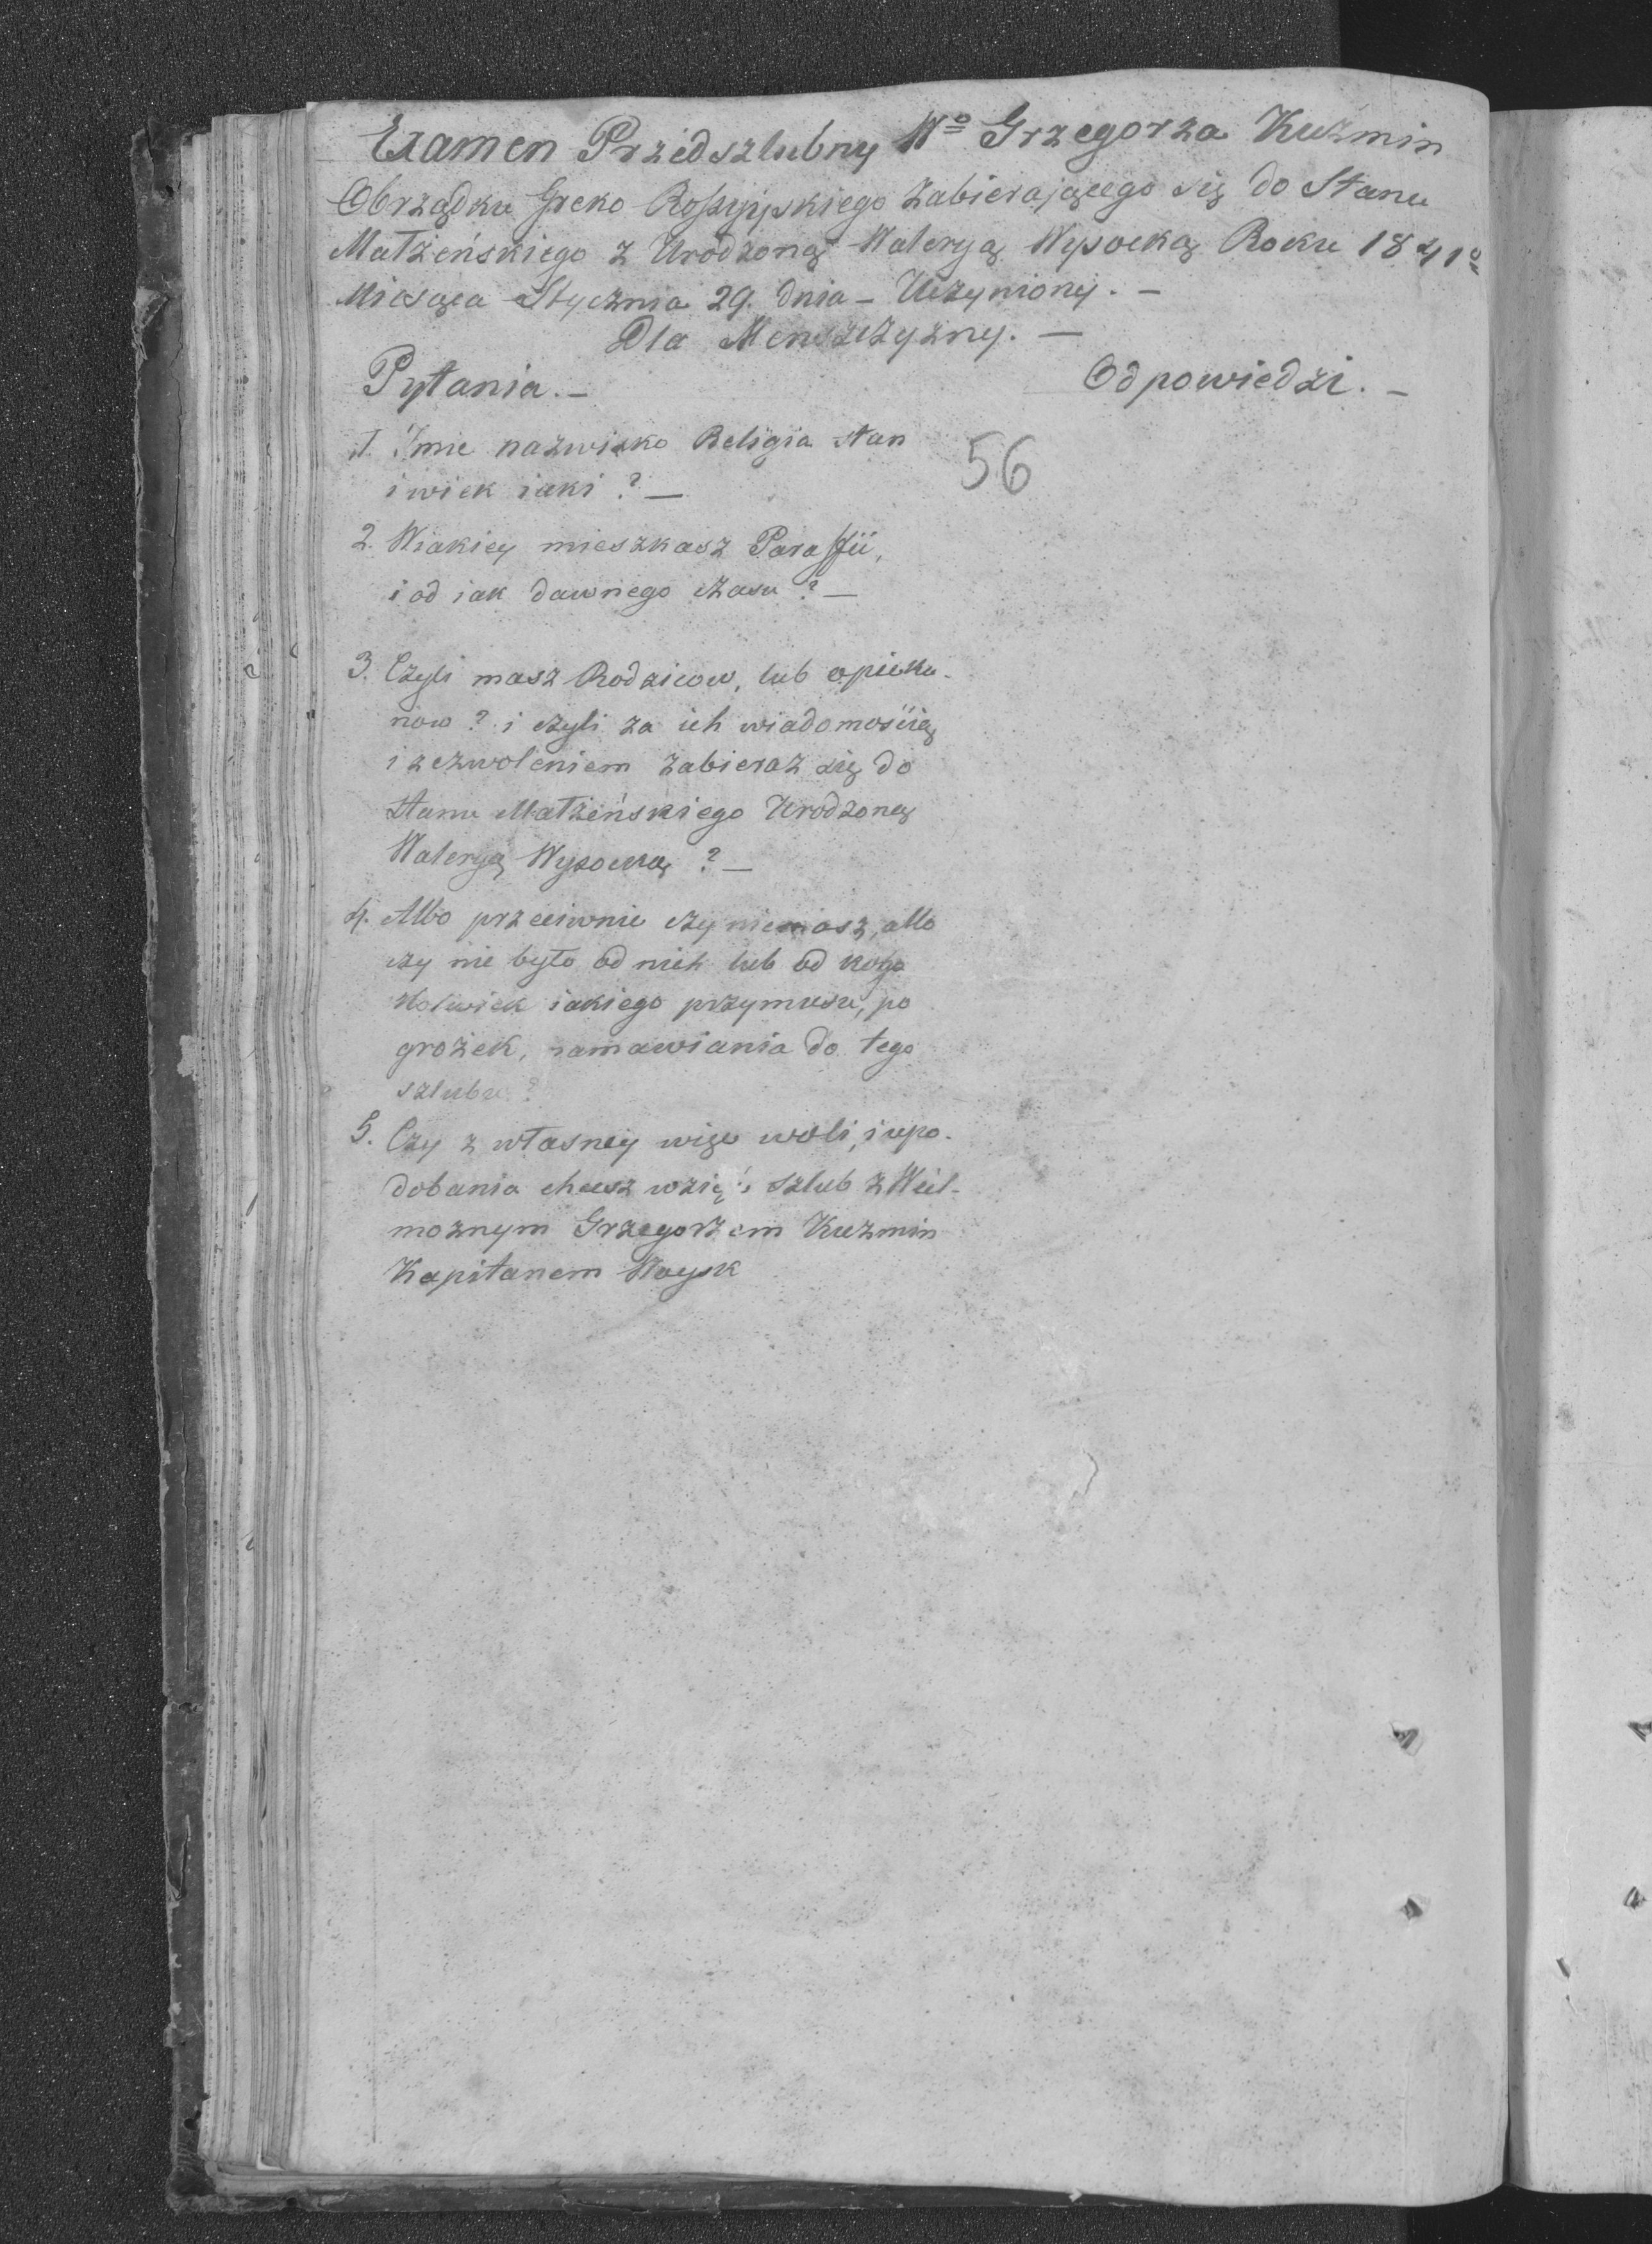 Examen Przedszlubny Wo Grzegorza Kuźmin
Obrządku Greko Rossyiskiego zabierającego się do Stanu
Małżeńskiego z Urodzoną Waleryą Wysocką Roku 1841o
Miesąca Stycznia 29. dnia - Uczyniony. -
Dla Menszczyzny. -
Pytania. -
Odpowiedzi. -
1. Imie nazwisko Religia stan
i wiek iaki? -
56
2. Wiakiey mieszkasz Paraffii,
i od iak dawnego czasu? -
3. Czyli masz Rodzicow, lub opieku-
now? i czyli za ich wiadomością
i zezwoleniem zabieraz się do
stanu Małżeńskiego Urodzoną
Waleryą Wysocką? -
4. Albo przeciwnie czy niemasz, albo
czy nie było od nich lub od kogo
kolwiek iakiego przymusu, po
grożek, namawiania do tego
szlubu?
5. Czy z własney więc woli, i upo-
dobania chcesz wziąć szlub z Wiel-
możnym Grzegorzem Kuzmin
Kapitanem Woysk